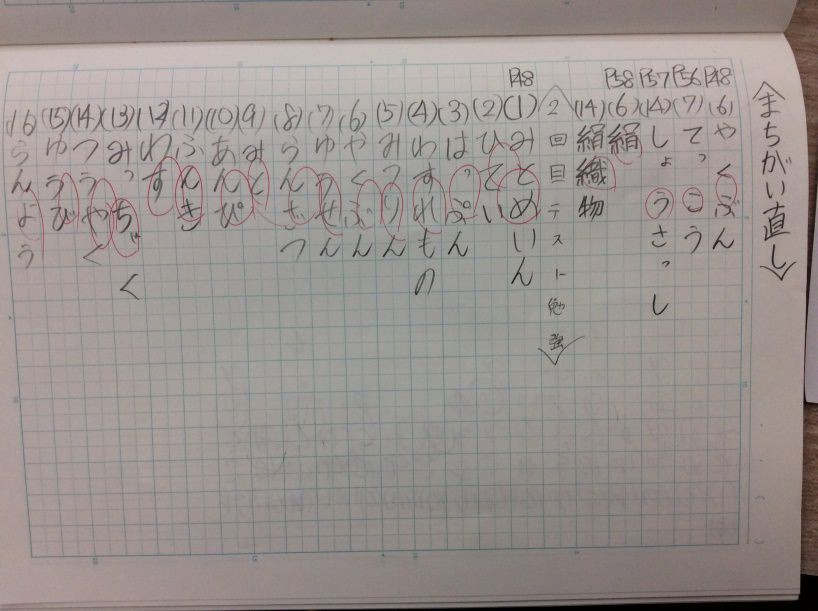 <まちがい直し>
P48 (6) やくぶん
P56 (7) てっこう
P57 (14) しょうさっし
P58 (6) 絹
(14) 絹織物
<2回目テスト勉強>
P48 (1) みとめいん
(2) ひてい
(3) はっぷん
(4) わすれもの
(5) みつりん
(6) やくぶん
(7) ゆうせん
(8) らんざつ
(9) みと
(10) あんぴ
(11) ふんき
(12) わす
(13) みっちゃく
(14) つうやく
(15) ゆうび
(16) らんよう